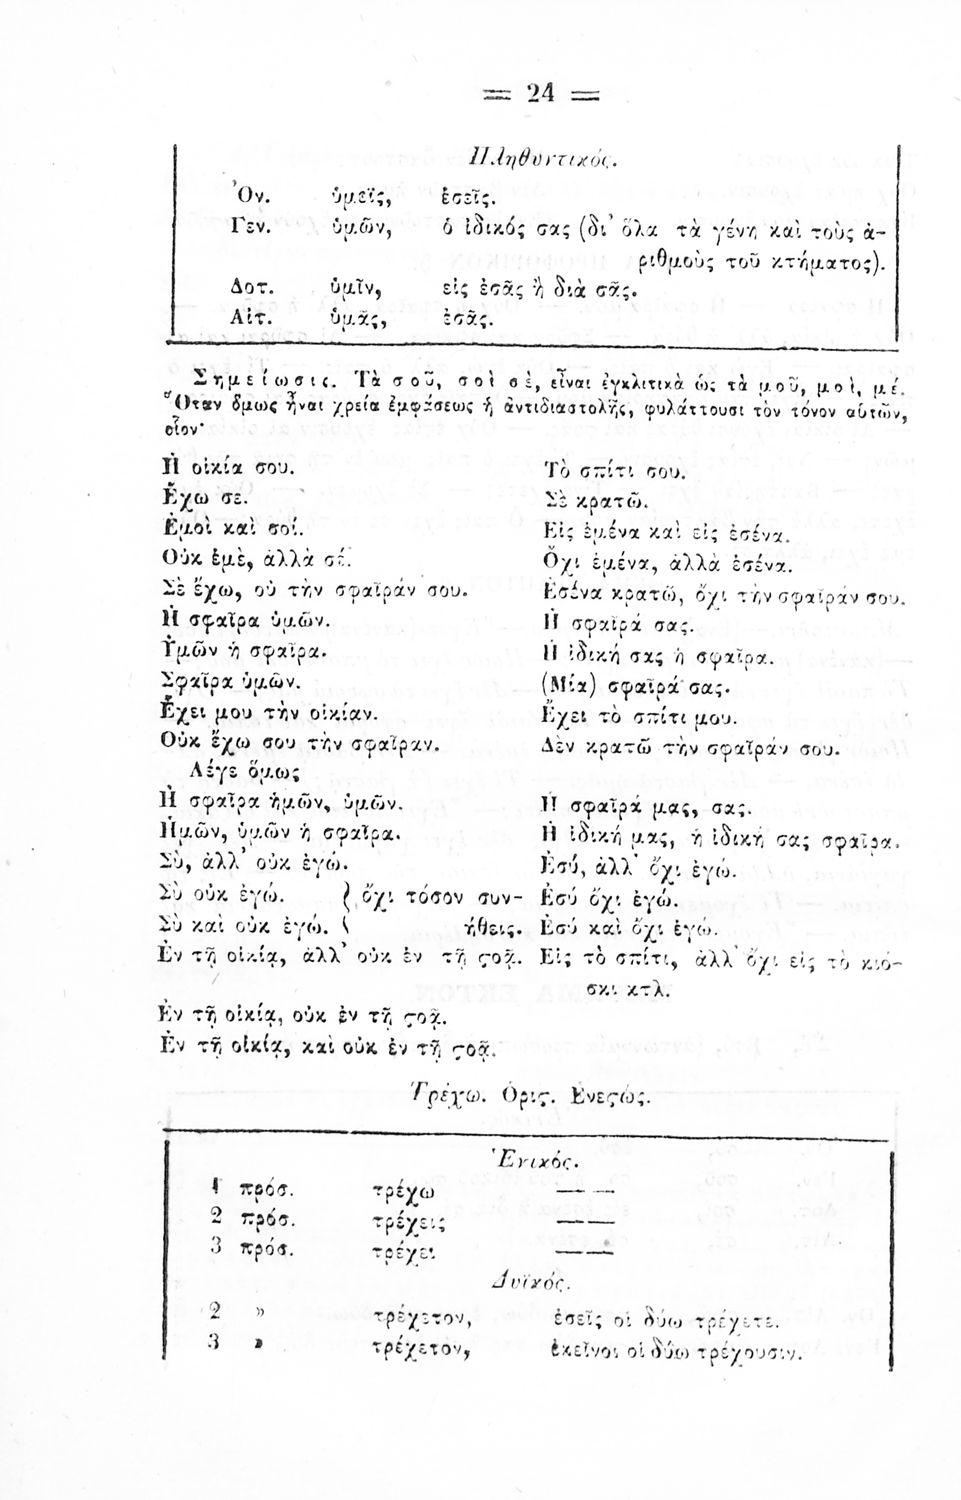 = 24 =
Πληθυντικός.
Ὀν. ὑμεῖς, ἐσεῖς.
Γεν. ὑμῶν, ὁ ἰδικός σας (δι' ὅλα τὰ γένη καὶ τοὺς ἀ-
ριθμοὺς τοῦ κτήματος).
Δοτ. ὑμῖν, εἰς ἐσᾶς ἢ διὰ σᾶς.
Αἰτ. ὑμᾶς, ἐσᾶς.
Σημείωσις. Τὰ σοῦ, σοὶ σέ, εἶναι ἐγκλιτικὰ ὡς τὰ μοῦ, μοὶ, μέ.
Ὅταν ὅμως ἦναι χρεία ἐμφάσεως ἢ ἀντιδιαστολῆς, φυλάττουσι τὸν τόνον αὑτῶν,
οἷον·
Ἡ οἰκία σου. Τὸ σπίτι σου.
Ἔχω σε. Σὲ κρατῶ.
Ἐμοὶ καὶ σοί. Εἰς ἐμένα καὶ εἰς ἐσένα.
Οὐκ ἐμὲ, ἀλλὰ σέ. Ὄχι ἐμένα, ἀλλὰ ἐσένα.
Σὲ ἔχω, οὐ τὴν σφαῖράν σου. Ἐσένα κρατῶ, ὄχι τὴν σφαῖράν σου.
Ἡ σφαῖρα ὑμῶν. Ἡ σφαῖρά σας.
Ὑμῶν ἡ σφαῖρα. Ἡ ἰδική σας ἡ σφαῖρα.
Σφαῖρα ὑμῶν. (Μία) σφαῖρά σας.
Ἔχει μου τὴν οἰκίαν. Ἔχει τὸ σπίτι μου.
Οὐκ ἔχω σου τὴν σφαῖραν. Δὲν κρατῶ τὴν σφαῖράν σου.
Λέγε ὅμως
Ἡ σφαῖρα ἡμῶν, ὑμῶν. Ἡ σφαῖρά μας, σας.
Ἡμῶν, ὑμῶν ἡ σφαῖρα. Ἡ ἰδική μας, ἡ ἰδική σας σφαῖρα.
Σὺ, ἀλλ' οὐκ ἐγώ. Ἐσύ, ἀλλ' ὄχι ἐγώ.
Σὺ οὐκ ἐγώ. } ὄχι τόσον συν- Ἐσύ ὄχι ἐγώ.
Σὺ καὶ οὐκ ἐγώ. ήθεις. Ἐσύ καὶ ὄχι ἐγώ.
Ἐν τῇ οἰκίᾳ, ἀλλ' οὐκ ἐν τῇ ϛοᾷ. Εἰς τὸ σπίτι, ἀλλ' ὄχι εἰς τὸ κιό-
σκι κτλ.
Ἐν τῇ οἰκίᾳ, οὐκ ἐν τῇ ϛοᾷ.
Ἐν τῇ οἰκίᾳ, καὶ οὐκ ἐν τῇ ϛοᾷ.
Τρέχω. Ὁριϛ. Ἐνεϛώς.
Ἑνικός.
1 πρόσ. τρέχω — —
2 πρόσ. τρέχεις — —
3 πρόσ. τρέχει — —
Δυϊκός.
2 » τρέχετον, ἐσεῖς οἱ δύω τρέχετε.
3 » τρέχετον, ἐκεῖνοι οἱ δύω τρέχουσιν.